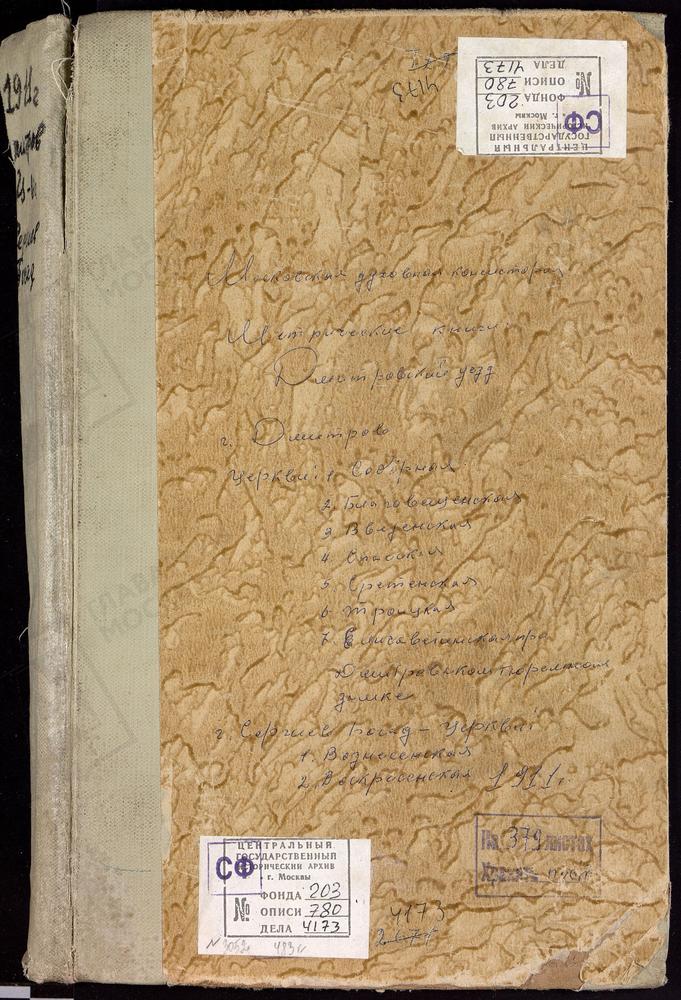 4173
ЦЕНТРАЛЬНЫЙ
ГОСУДАРСТВЕННЫЙ
ИСТОРИЧЕСКИЙ АРХИВ
г. Москвы
СФ
ФОНДА 203
№ ОПИСИ 780
ДЕЛА 4173
1911г
Московская духовная консистория
Метрические книги:
Дмитровский уезд
г. Дмитров
Церкви: 1. Соборная
2. Благовещенская
3. Введенская
4. Спасская
5. Сретенская
6. Троицкая
7. Елисаветинская при
Дмитровском тюремном
замке
г. Сергиев Посад - Церкви:
1. Вознесенская
2. Воскресенская 1911г.
На 379 листах
Хранить пост.
ЦЕНТРАЛЬНЫЙ
ГОСУДАРСТВЕННЫЙ
ИСТОРИЧЕСКИЙ АРХИВ
г. Москвы
СФ
ФОНДА 203
№ ОПИСИ 780
ДЕЛА 4173
4173